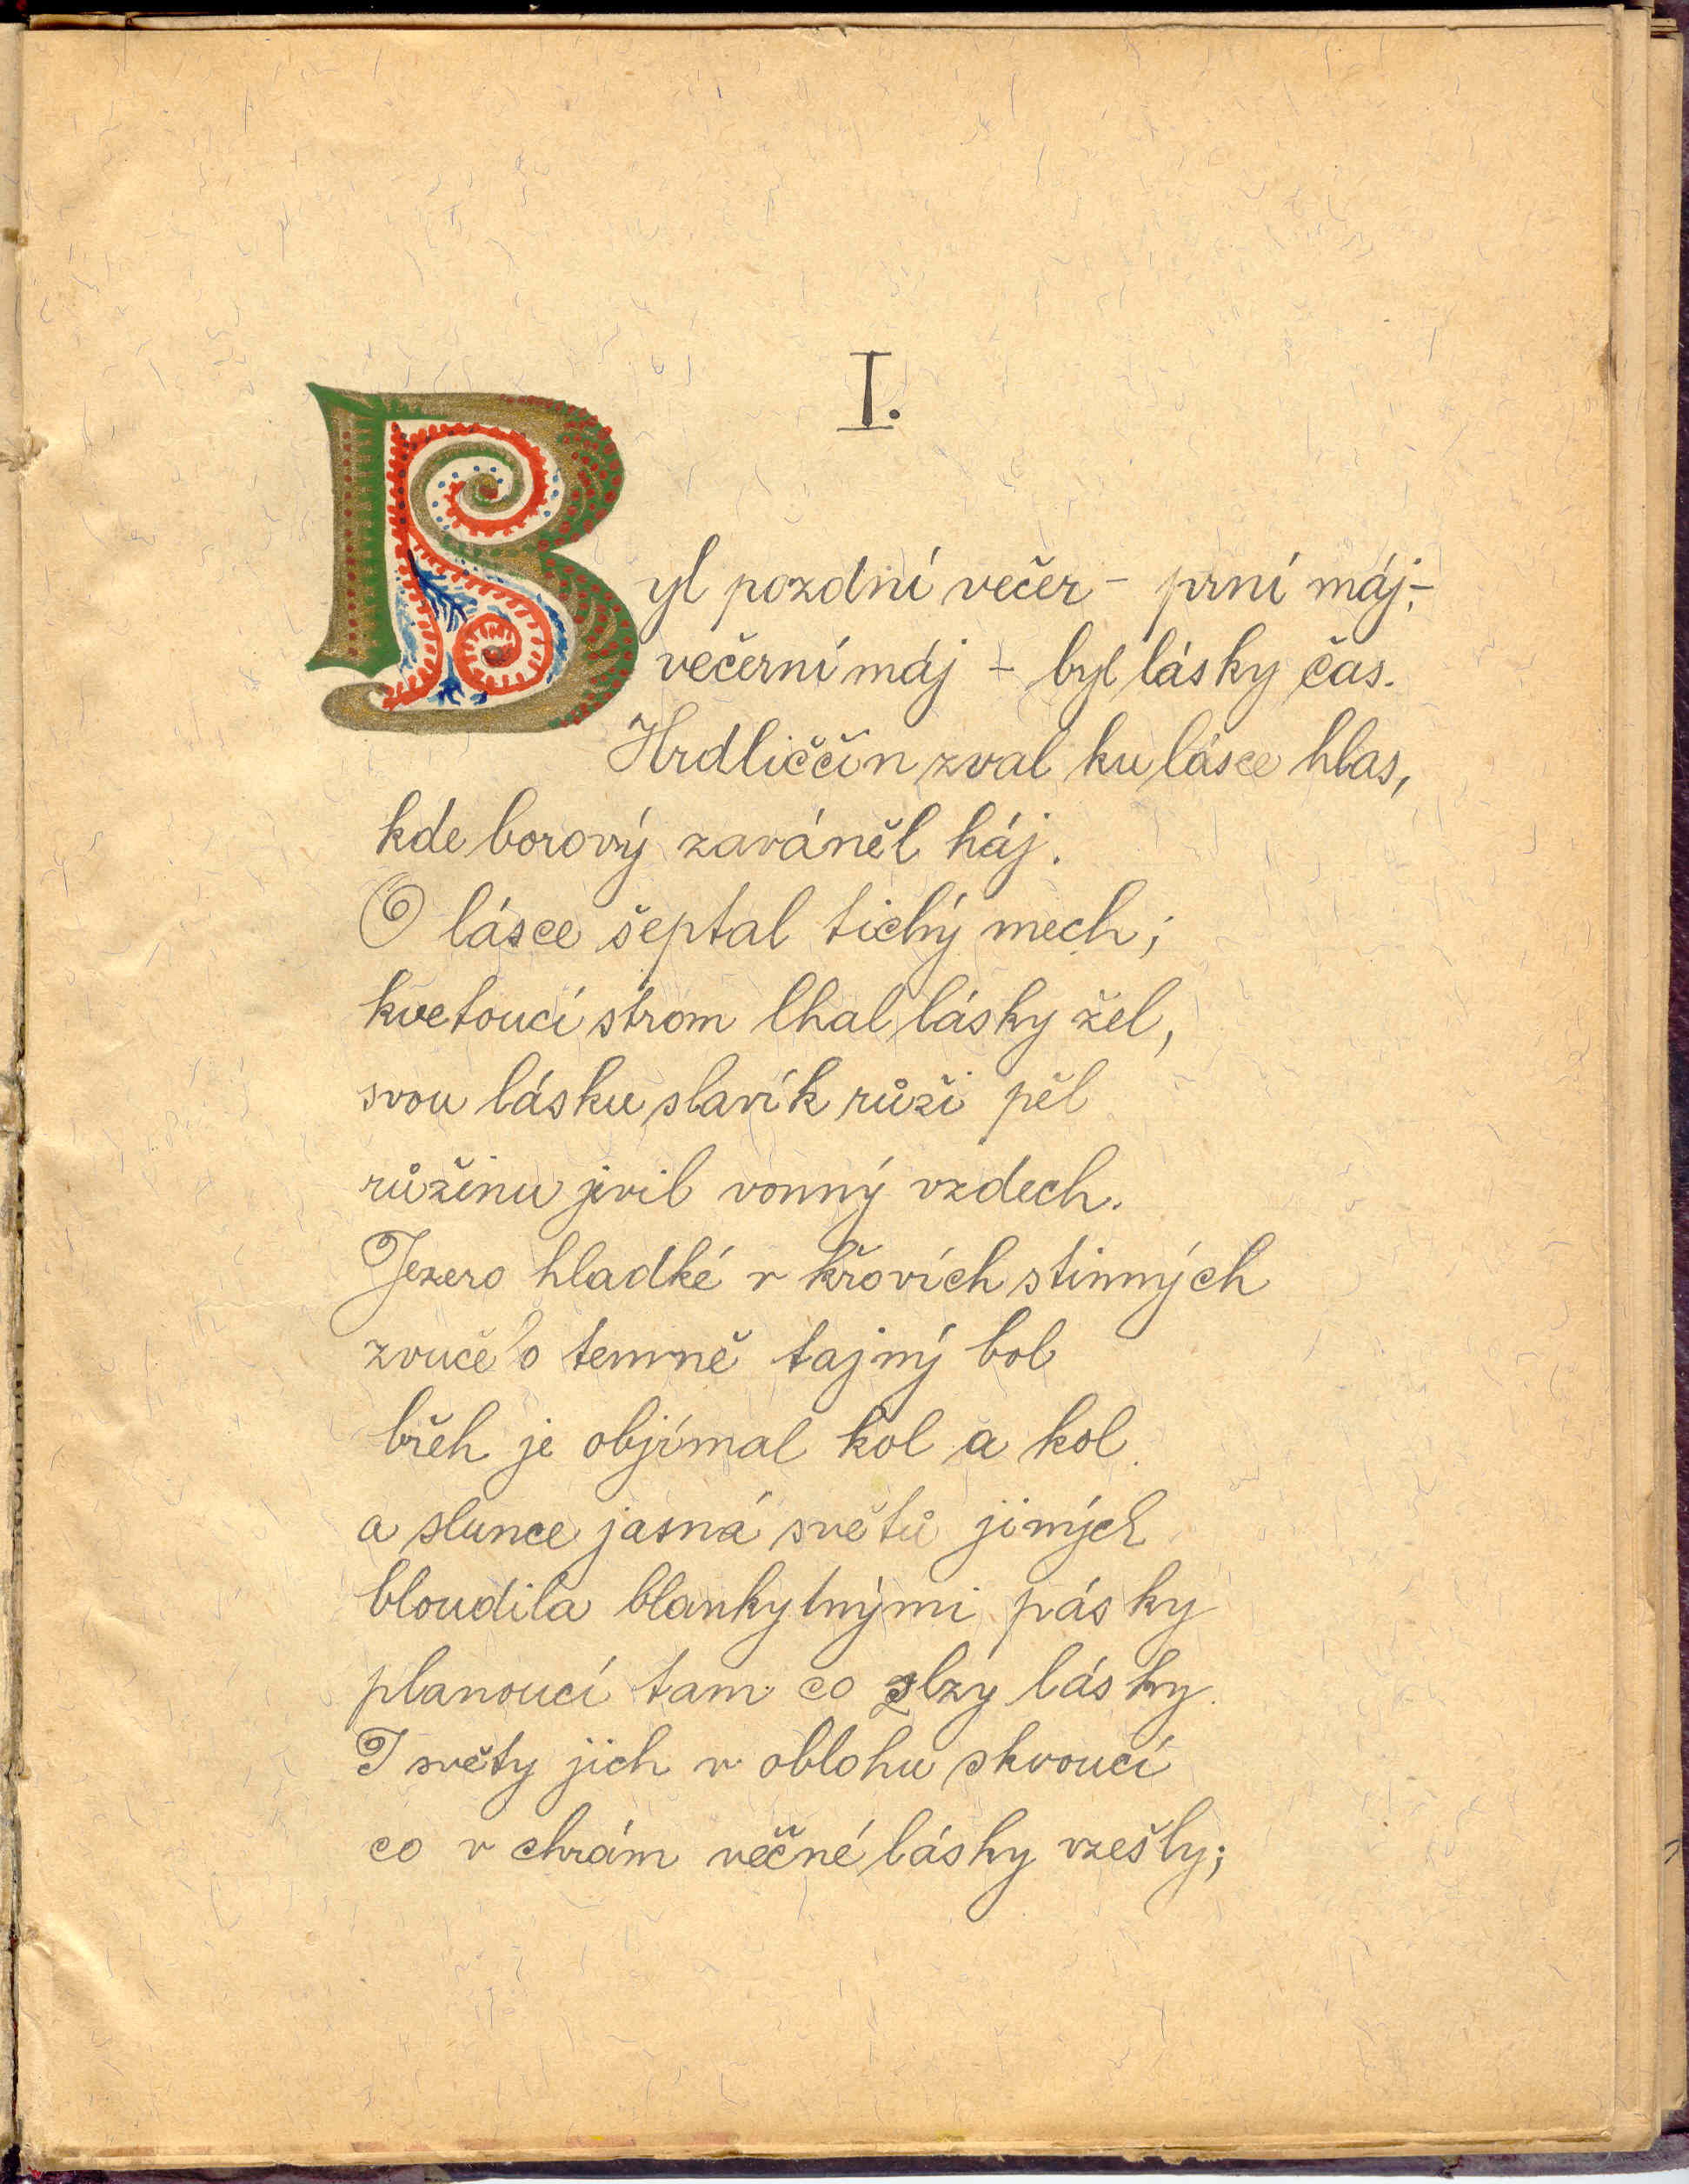 I.
Byl pozdní večer – prní máj –
večerní máj – byl lásky čas.
Hrdliččin zval ku lásce hlas,
kde borový zaváněl háj.
O lásce šeptal tichý mech;
kvetoucí strom lhal lásky žel,
svou lásku slavík růži pěl
růžinu jevil vonný vzdech.
Jezero hladké v křovích stinných
zvučelo temně tajný bol
břeh je objímal kol a kol
a slunce jasná světů jiných
bloudila blankytnými pásky
planoucí tam co slzy lásky.
I světy jich v oblohu skvoucí
co v chrám věčné lásky vzešly;